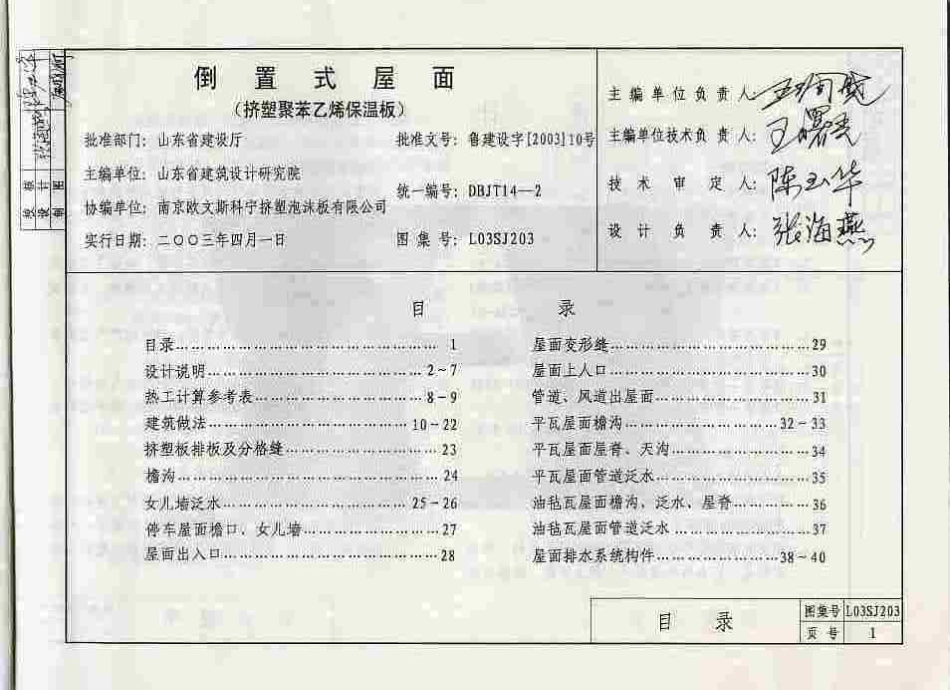 倒置式屋面
(挤塑聚苯乙烯保温板)
批准部门: 山东省建设厅
批准文号: 鲁建设字[2003]10号
主编单位: 山东省建筑设计研究院
统一编号: DBJT14—2
协编单位: 南京欧文斯科宁挤塑泡沫板有限公司
实行日期: 二〇〇三年四月一日
图集号: L03SJ203
主编单位负责人:
主编单位技术负责人: 王曙光
技术审定人: 陈玉华
设计负责人: 张海燕
校核
设计
制图
目录
目录……………………………… 1
设计说明……………………………2~7
热工计算参考表……………………8~9
建筑做法…………………………10~22
挤塑板排板及分格缝………………23
檐沟…………………………………24
女儿墙泛水………………………25~26
停车屋面檐口、女儿墙……………27
屋面出入口…………………………28
屋面变形缝…………………………29
屋面上人口…………………………30
管道、风道出屋面…………………31
平瓦屋面檐沟……………………32~33
平瓦屋面屋脊、天沟………………34
平瓦屋面管道泛水…………………35
油毡瓦屋面檐沟、泛水、屋脊……36
油毡瓦屋面管道泛水………………37
屋面排水系统构件………………38~40
目录
图集号 L03SJ203
页号 1